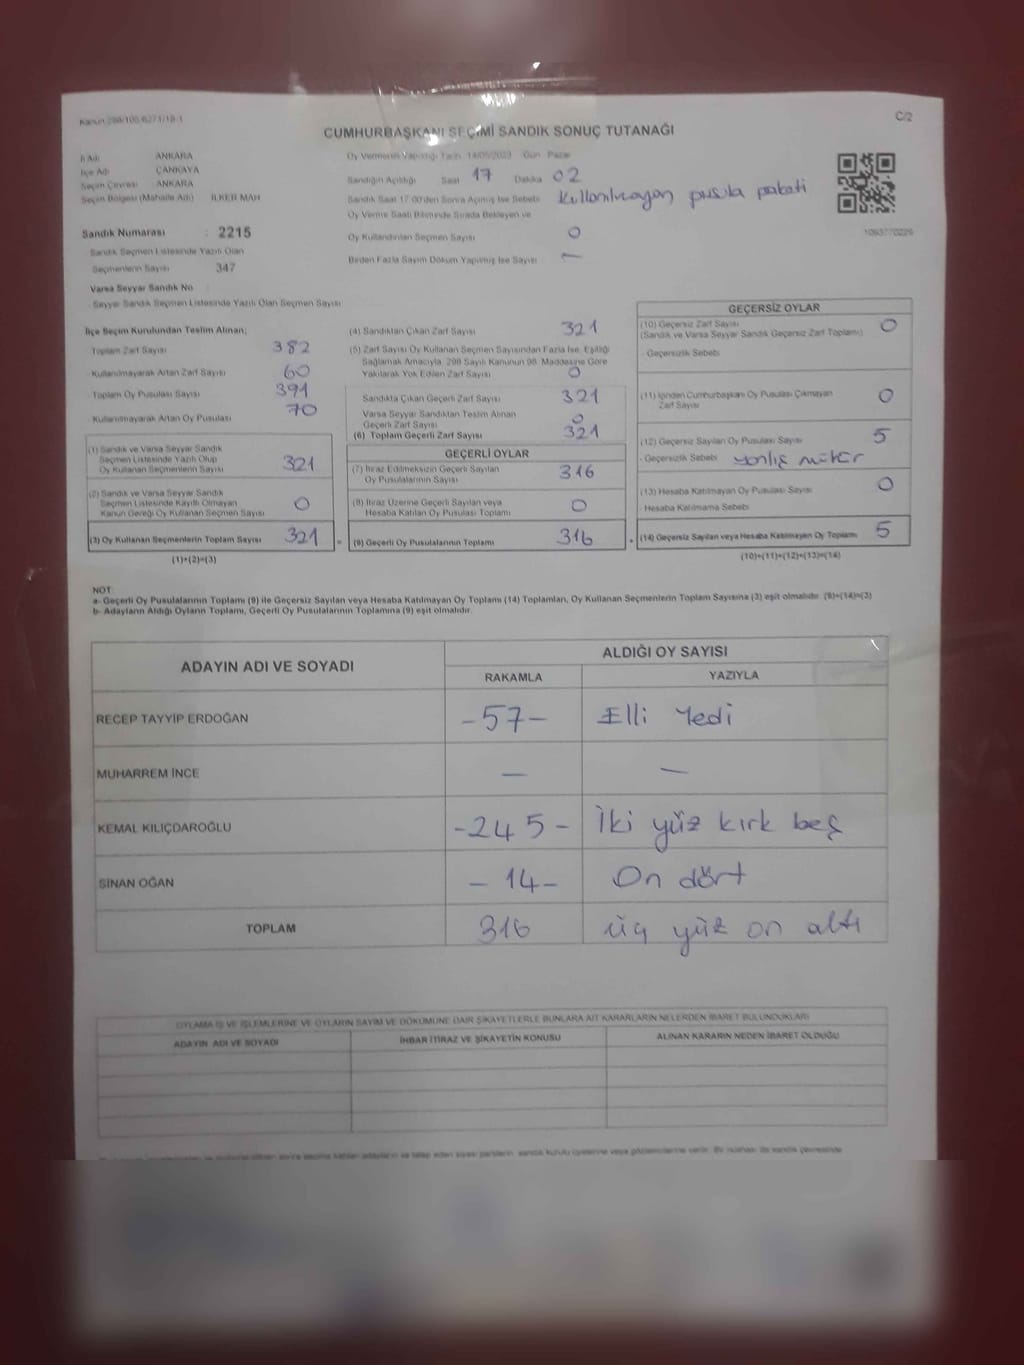 Kanun:298/106/6271/19-1
C/2
CUMHURBAŞKANI SEÇİMİ SANDIK SONUÇ TUTANAĞI
İl Adı ANKARA
İlçe Adı ÇANKAYA
Seçim Çevresi ANKARA
Seçim Bölgesi (Mahalle Adı) İLKER MAH
Sandık Numarası : 2215
Sandık Seçmen Listesinde Yazılı Olan
Seçmenlerin Sayısı 347
Varsa Seyyar Sandık No
Seyyar Sandık Seçmen Listesinde Yazılı Olan Seçmen Sayısı
Oy Vermenin Yapıldığı Tarih 14/05/2023 Gün Pazar
Sandığın Açıldığı Saat 17 Dakika 02
Sandık Saat 17:00'den Sonra Açılmış İse Sebebi Kullanılmayan pusula paketi
Oy Verme Saati Bitiminde Sırada Bekleyen ve
Oy Kullandırılan Seçmen Sayısı 0
Birden Fazla Sayım Döküm Yapılmış İse Sayısı —
1093770229
İlçe Seçim Kurulundan Teslim Alınan;
Toplam Zarf Sayısı 382
Kullanılmayarak Artan Zarf Sayısı 60
Toplam Oy Pusulası Sayısı 391
Kullanılmayarak Artan Oy Pusulası 70
(1) Sandık ve Varsa Seyyar Sandık
Seçmen Listesinde Yazılı Olup
Oy Kullanan Seçmenlerin Sayısı 321
(2) Sandık ve Varsa Seyyar Sandık
Seçmen Listesinde Kayıtlı Olmayan
Kanun Gereği Oy Kullanan Seçmen Sayısı 0
(3) Oy Kullanan Seçmenlerin Toplam Sayısı 321 =
(1)+(2)=(3)
(4) Sandıktan Çıkan Zarf Sayısı 321
(5) Zarf Sayısı Oy Kullanan Seçmen Sayısından Fazla İse, Eşitliği
Sağlamak Amacıyla, 298 Sayılı Kanunun 98. Maddesine Göre
Yakılarak Yok Edilen Zarf Sayısı 0
Sandıkta Çıkan Geçerli Zarf Sayısı 321
Varsa Seyyar Sandıktan Teslim Alınan
Geçerli Zarf Sayısı 0
(6) Toplam Geçerli Zarf Sayısı 321
GEÇERLİ OYLAR
(7) İtiraz Edilmeksizin Geçerli Sayılan
Oy Pusulalarının Sayısı 316
(8) İtiraz Üzerine Geçerli Sayılan veya
Hesaba Katılan Oy Pusulası Toplamı 0
(9) Geçerli Oy Pusulalarının Toplamı 316 +
GEÇERSİZ OYLAR
(10) Geçersiz Zarf Sayısı 0
(Sandık ve Varsa Seyyar Sandık Geçersiz Zarf Toplamı)
- Geçersizlik Sebebi
(11) İçinden Cumhurbaşkanı Oy Pusulası Çıkmayan
Zarf Sayısı 0
(12) Geçersiz Sayılan Oy Pusulası Sayısı 5
- Geçersizlik Sebebi yanlış mühür
(13) Hesaba Katılmayan Oy Pusulası Sayısı 0
- Hesaba Katılmama Sebebi
(14) Geçersiz Sayılan veya Hesaba Katılmayan Oy Toplamı 5
(10)+(11)+(12)+(13)=(14)
NOT:
a- Geçerli Oy Pusulalarının Toplamı (9) ile Geçersiz Sayılan veya Hesaba Katılmayan Oy Toplamı (14) Toplamları, Oy Kullanan Seçmenlerin Toplam Sayısına (3) eşit olmalıdır. (9)+(14)=(3)
b- Adayların Aldığı Oyların Toplamı, Geçerli Oy Pusulalarının Toplamına (9) eşit olmalıdır.
ADAYIN ADI VE SOYADI ALDIĞI OY SAYISI
RAKAMLA YAZIYLA
RECEP TAYYİP ERDOĞAN -57- Elli Yedi
MUHARREM İNCE — —
KEMAL KILIÇDAROĞLU -245- İki yüz kırk beş
SİNAN OĞAN -14- On dört
TOPLAM 316 üç yüz on altı
OYLAMA İŞ VE İŞLEMLERİNE VE OYLARIN SAYIM VE DÖKÜMÜNE DAİR ŞİKAYETLERLE BUNLARA AİT KARARLARIN NELERDEN İBARET BULUNDUKLARI
ADAYIN ADI VE SOYADI İHBAR İTİRAZ VE ŞİKAYETİN KONUSU ALINAN KARARIN NEDEN İBARET OLDUĞU